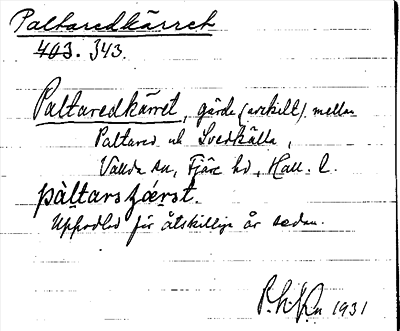 Paltaredkärret
403. 343.
Paltaredkärret, gärde (avskilt) mellan
Paltared och Svedkälla,
Vallda sn, Fjäre hd, Hall. l.
pàltarsɟœ́rət.
Uppodlad för åtskilliga år sedan.
1931